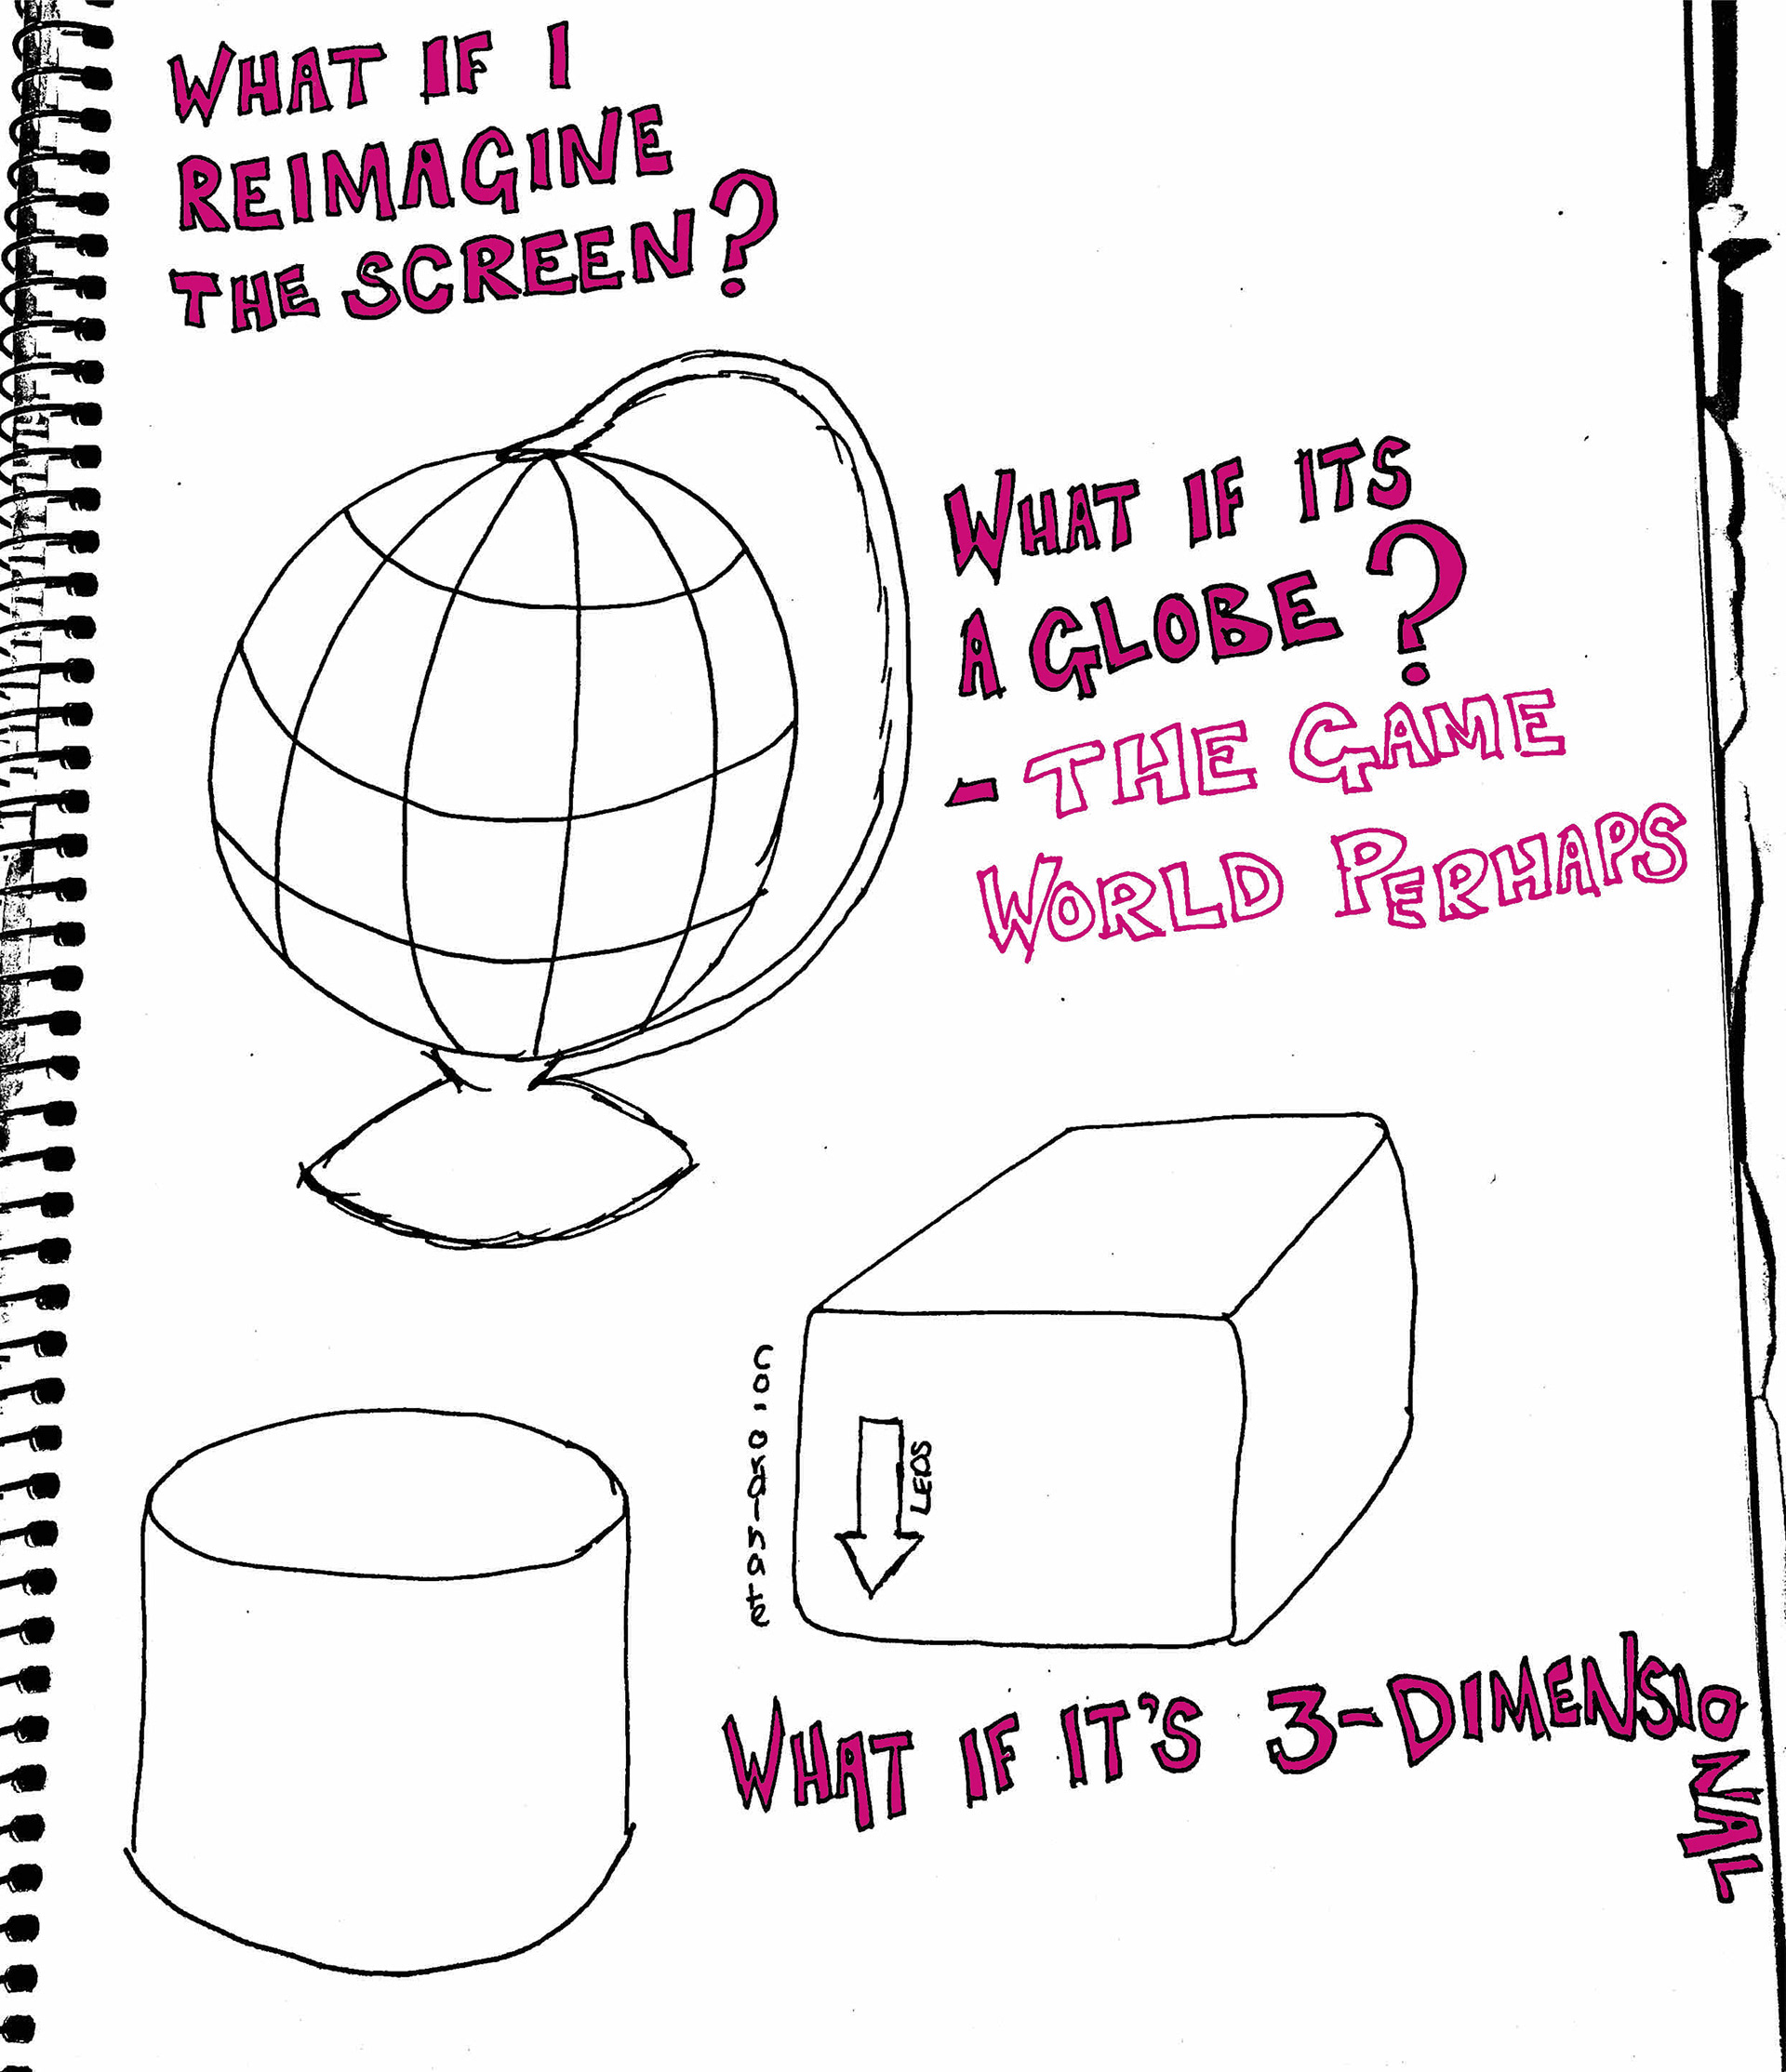 WHAT IF I
REIMAGINE
THE SCREEN?
WHAT IF ITS
A GLOBE?
- THE GAME
WORLD PERHAPS
Co-ordinate
LEDS
WHAT IF IT'S 3-DIMENSIONAL